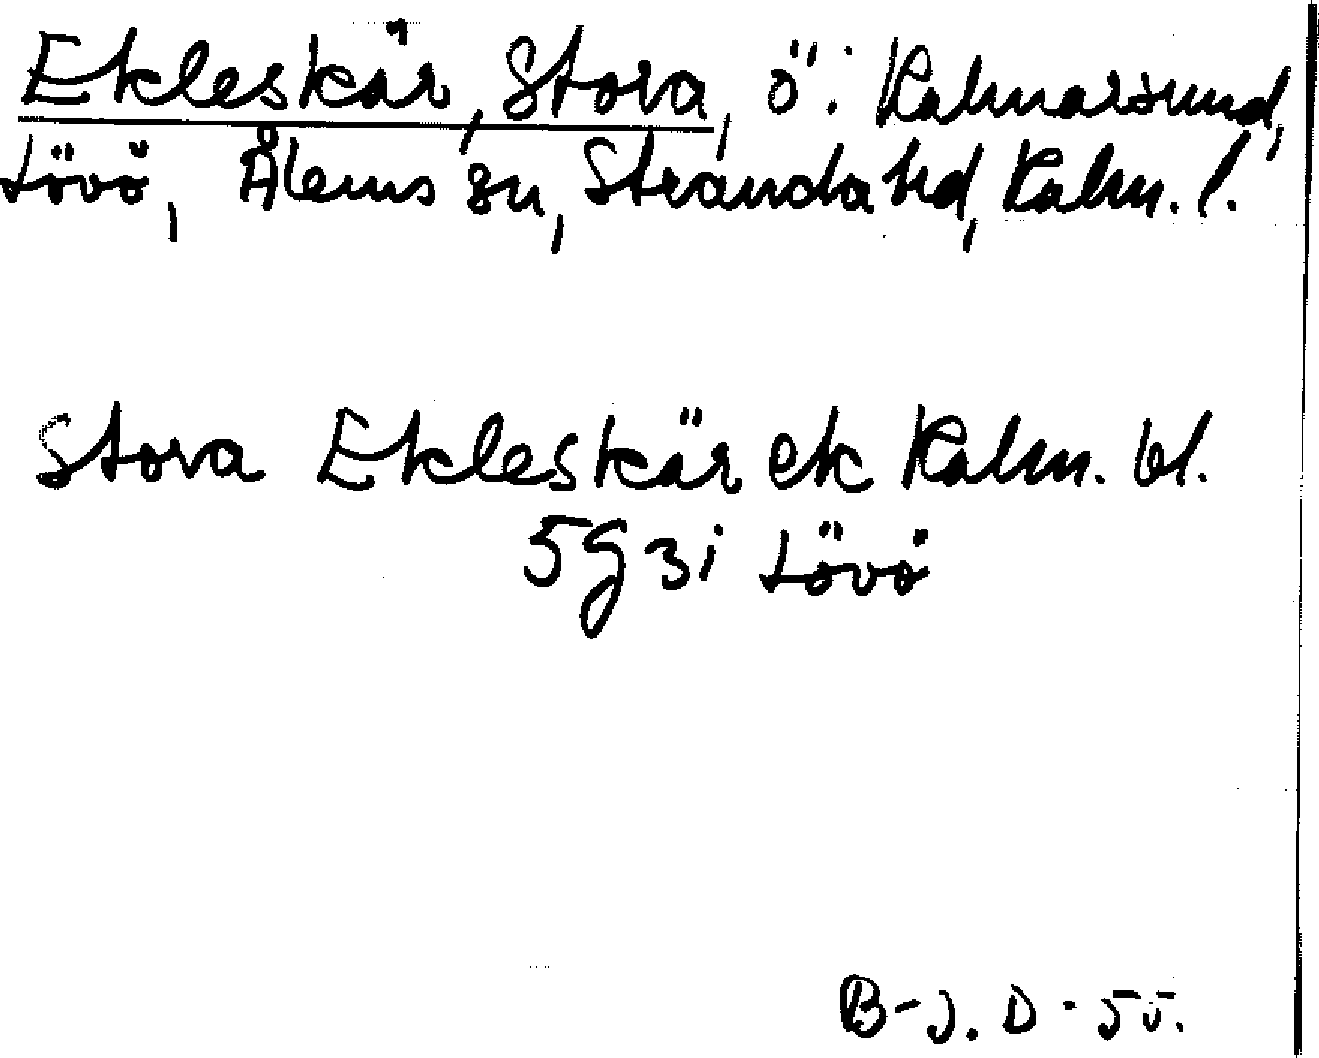 Ekleskär, Stora, ö i Kalmarsund,
Lövö, Ålems sn, Stranda hd, Kalm. l.
Stora Ekleskär ek Kalm. bl.
5g3i Lövö
B-J. D - 55.